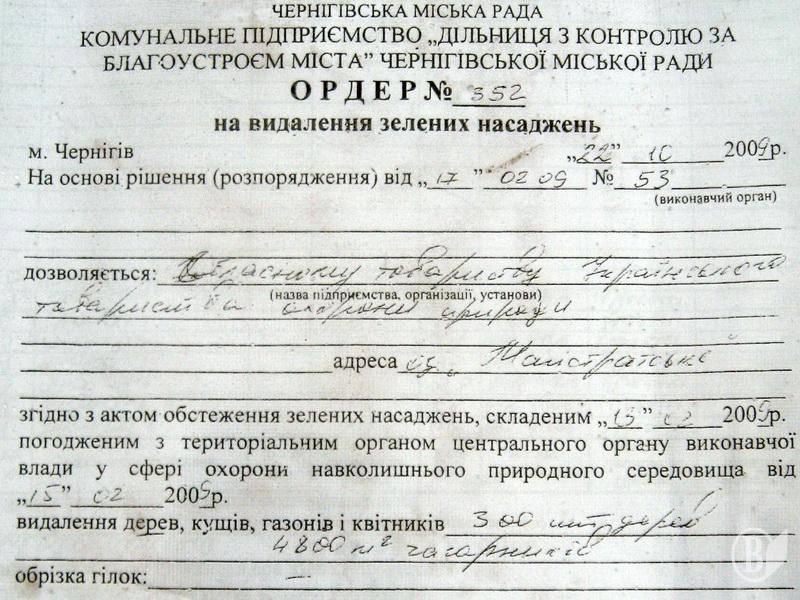 ЧЕРНІГІВСЬКА МІСЬКА РАДА
КОМУНАЛЬНЕ ПІДПРИЄМСТВО „ДІЛЬНИЦЯ З КОНТРОЛЮ ЗА
БЛАГОУСТРОЄМ МІСТА” ЧЕРНІГІВСЬКОЇ МІСЬКОЇ РАДИ
ОРДЕР № 352
на видалення зелених насаджень
м. Чернігів „22” 10 2009р.
На основі рішення (розпорядження) від „17” 02 09 № 53
(виконавчий орган)
дозволяється: товариству Українського
(назва підприємства, організації, установи)
товариства охорони природи
адреса
згідно з актом обстеження зелених насаджень, складеним „13” 02 2009р.
погодженим з територіальним органом центрального органу виконавчої
влади у сфері охорони навколишнього природного середовища від
„15” 02 2009р.
видалення дерев, кущів, газонів і квітників 300 шт дерев
4800 м² чагарників
обрізка гілок: —
В